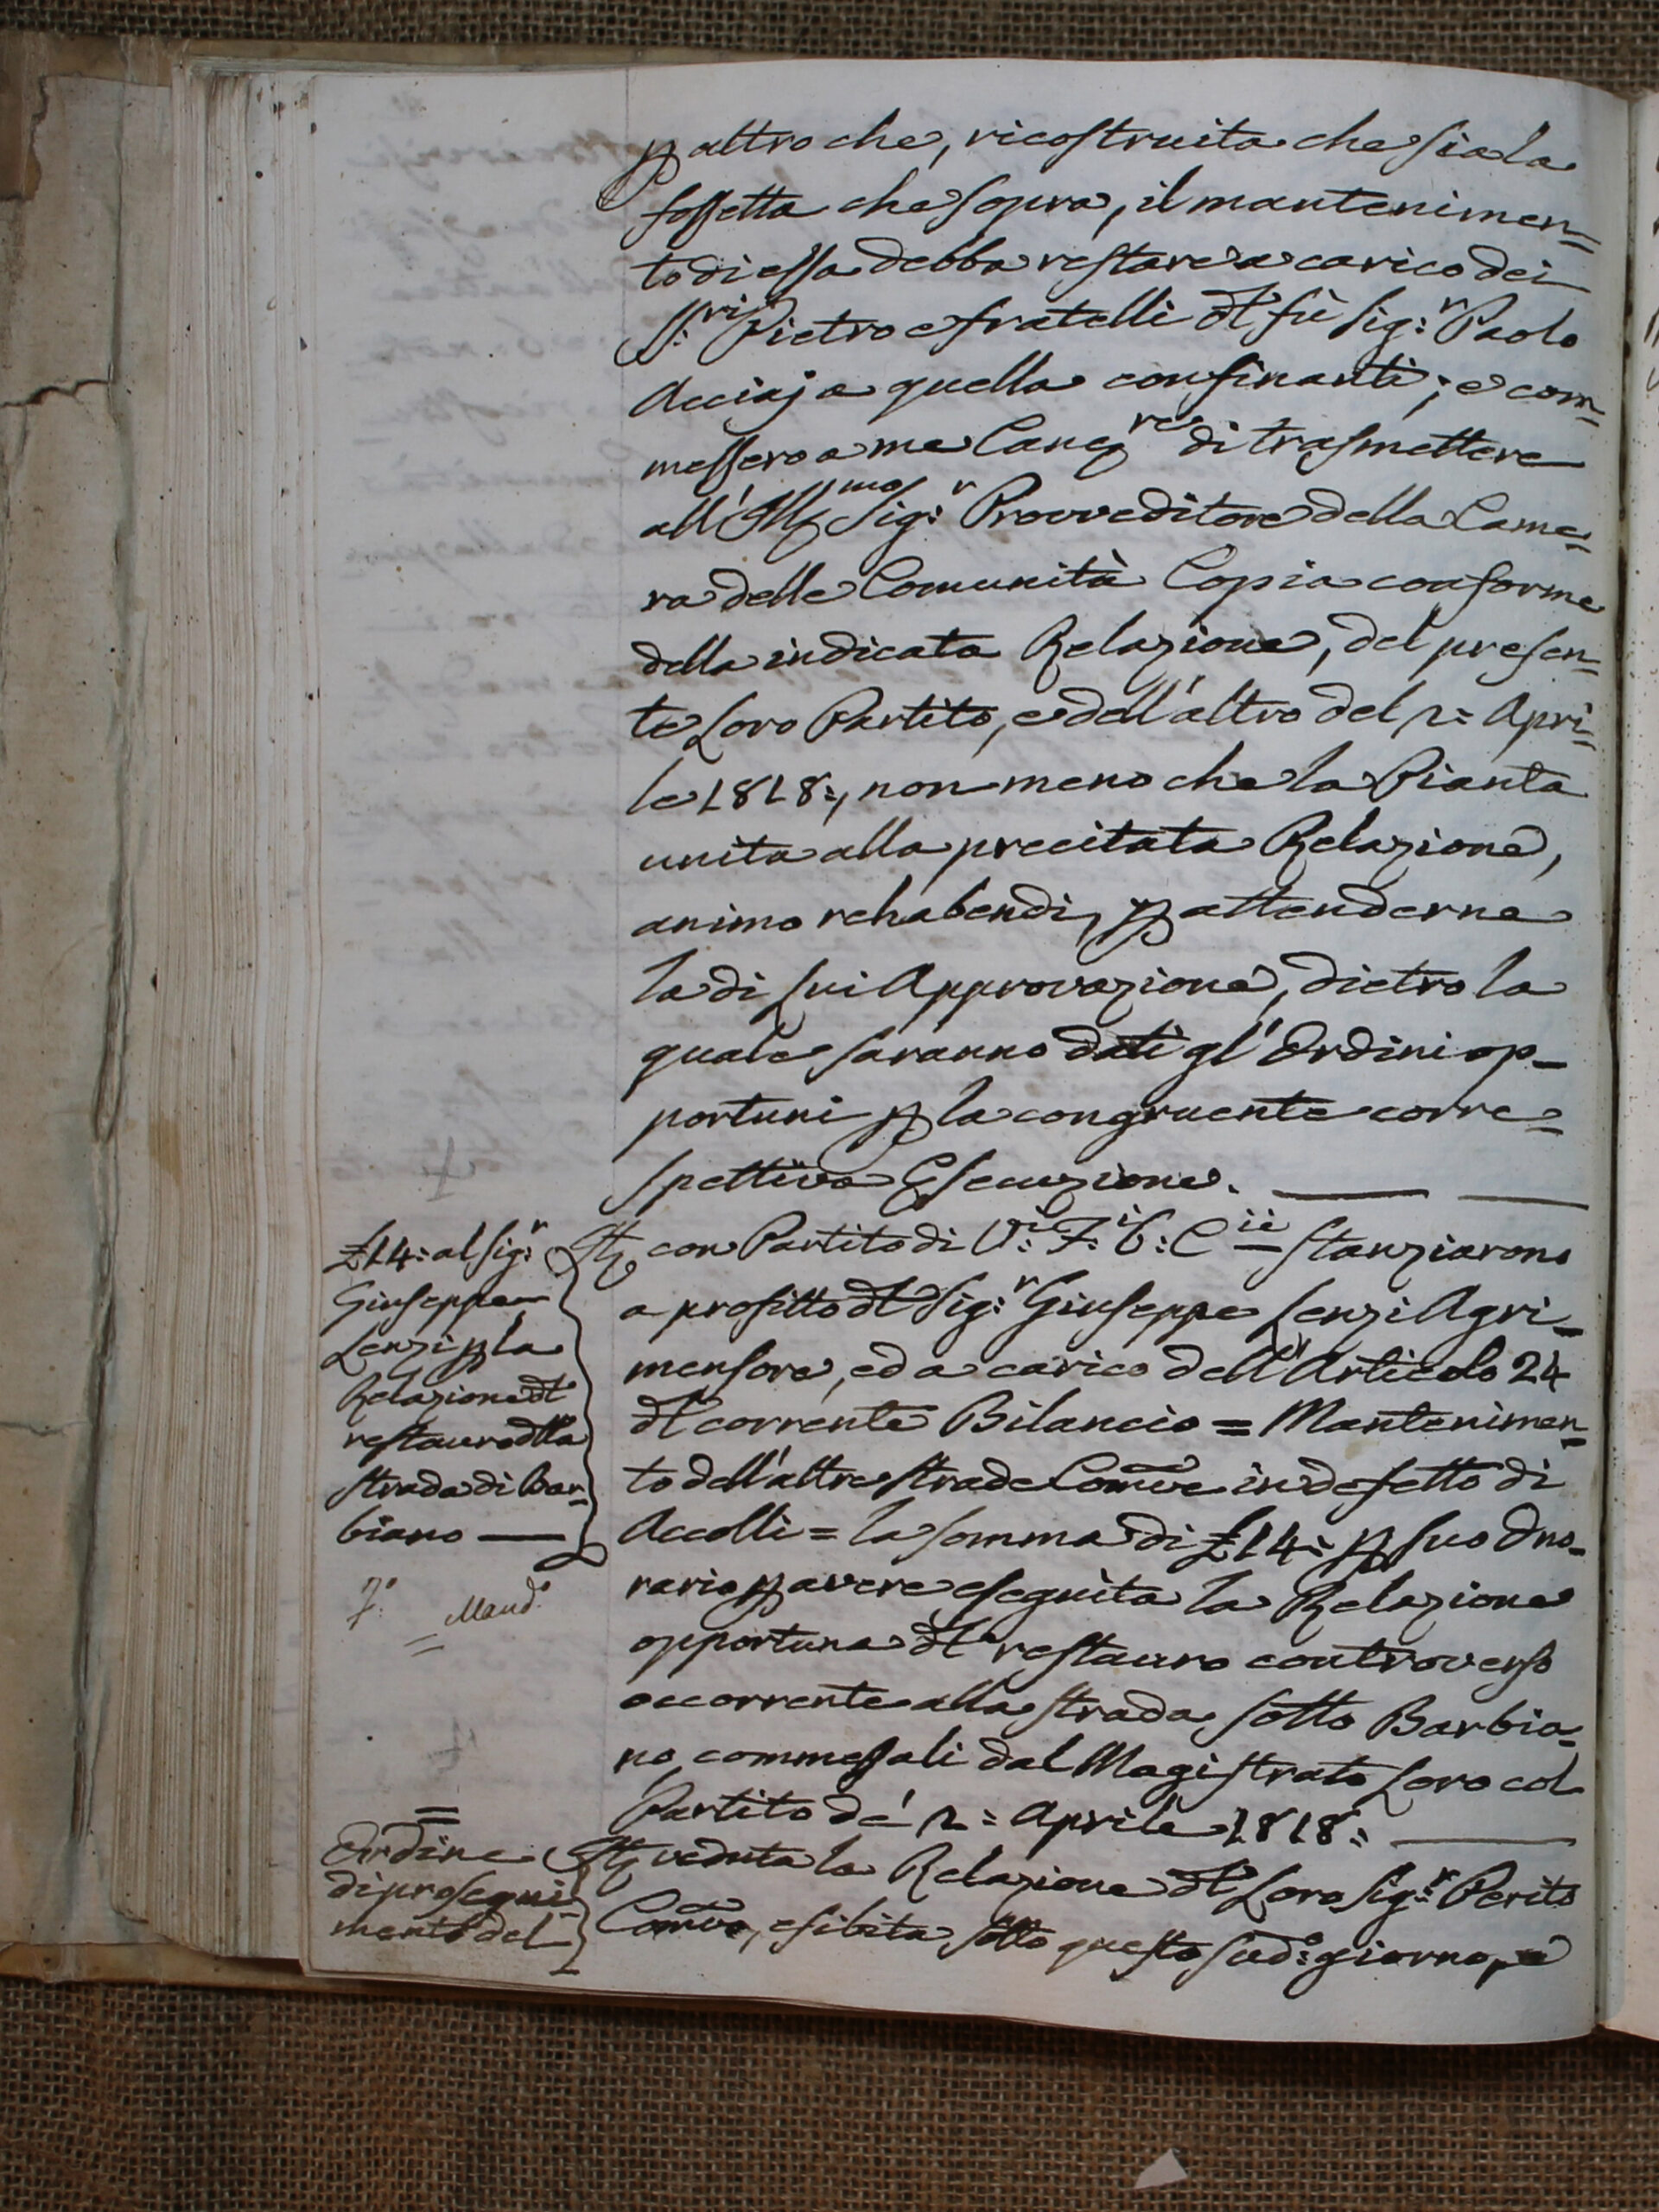 p altro che, ricostruita che sia la
fossetta che sopra, il mantenimen=
to di essa debba restare a carico dei
SS:ri Pietro e fratelli dl fù Sig:r Paolo
Acciaj a quella confinanti; e com=
messero a me Cancre di trasmettere
all'Illmo Sig:r Provveditore della Came=
ra delle Comunità Copia conforme
della indicata Relazione, del presen=
te Loro Partito, e dell'altro del 2= Apri=
le 1818:, non meno che la Pianta
unita alla precitata Relazione,
animo rehabendi, p attenderne
la di lui Approvazione, dietro la
quale saranno dati gl'Ordini op=
portuni p la congruente corre=
spettiva Esecuzione.
£14: al Sig:r
Giuseppe
Lenzi p la
Relazione dl
restauro dlla
strada di Bar=
biano
7:° Mand:°
Itt con Partito di V:i F:i 6: C:ii stanziarono
a profitto dl Sig:r Giuseppe Lenzi Agri=
mensore, ed a carico dell'Articolo 24
dl corrente Bilancio = Mantenimen=
to dell'altre strade Comve in defetto di
Accolli = la somma di £14: p suo Ono=
rario p avere eseguita la Relazione
opportuna dl restauro controverso
occorrente alla strada sotto Barbia=
no, commessali dal Magistrato Loro col
Partito de' 2= Aprile 1818:
=
Ordine
di prosegui=
mento del
Itt veduta la Relazione dl Loro Sig:r Perito
Comvo, esibita sotto questo sud:° giorno, e